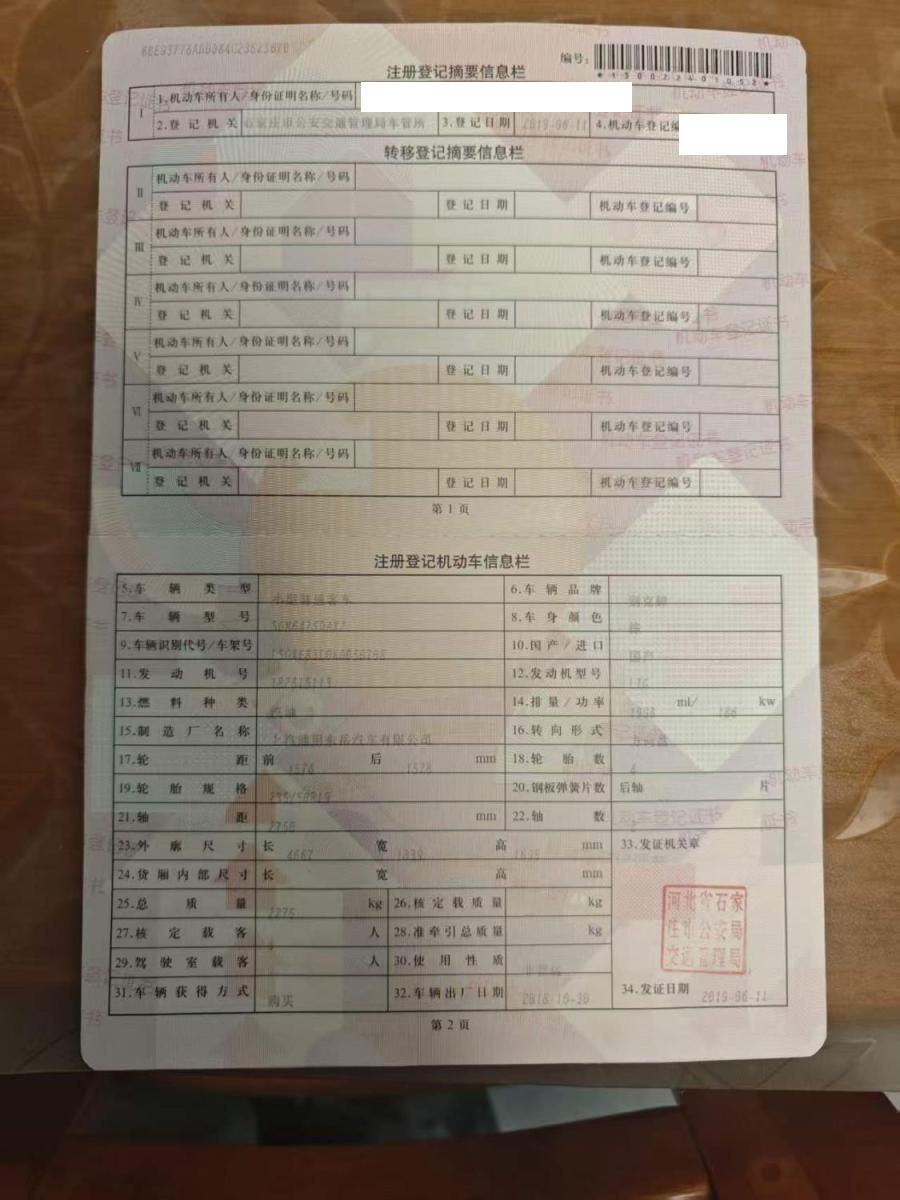 编号:
*130022401052*
注册登记摘要信息栏
I 1.机动车所有人/身份证明名称/号码
2.登记机关 石家庄市公安交通管理局车管所 3.登记日期 2019-06-11 4.机动车登记编
转移登记摘要信息栏
II 机动车所有人/身份证明名称/号码
登记机关 登记日期 机动车登记编号
III 机动车所有人/身份证明名称/号码
登记机关 登记日期 机动车登记编号
IV 机动车所有人/身份证明名称/号码
登记机关 登记日期 机动车登记编号
V 机动车所有人/身份证明名称/号码
登记机关 登记日期 机动车登记编号
VI 机动车所有人/身份证明名称/号码
登记机关 登记日期 机动车登记编号
VII 机动车所有人/身份证明名称/号码
登记机关 登记日期 机动车登记编号
第1页
注册登记机动车信息栏
5.车辆类型 小型普通客车 6.车辆品牌 别克牌
7.车辆型号 8.车身颜色 棕
9.车辆识别代号/车架号 10.国产/进口 国产
11.发动机号 12.发动机型号 LTG
13.燃料种类 汽油 14.排量/功率 1998 ml/ 186 kw
15.制造厂名称 上汽通用东岳汽车有限公司 16.转向形式 方向盘
17.轮距 前 1576 后 1578 mm 18.轮胎数 4
19.轮胎规格 235/50R19 20.钢板弹簧片数 后轴 片
21.轴距 2750 mm 22.轴数 2
23.外廓尺寸 长 4667 宽 1839 高 1695 mm 33.发证机关章
24.货厢内部尺寸 长 宽 高 mm
25.总质量 2275 kg 26.核定载质量 kg
河北省石家
庄市公安局
交通管理局
27.核定载客 人 28.准牵引总质量 kg
29.驾驶室载客 人 30.使用性质 非营运
31.车辆获得方式 购买 32.车辆出厂日期 2018-10-30 34.发证日期 2019-06-11
第2页